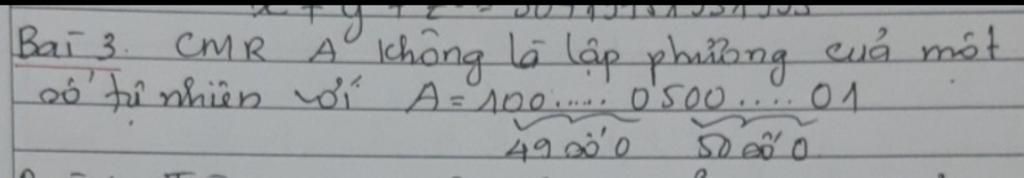 Bài 3. CMR A không là lập phương của một
số tự nhiên với A = 100.....0500....01
49 số 0 50 số 0